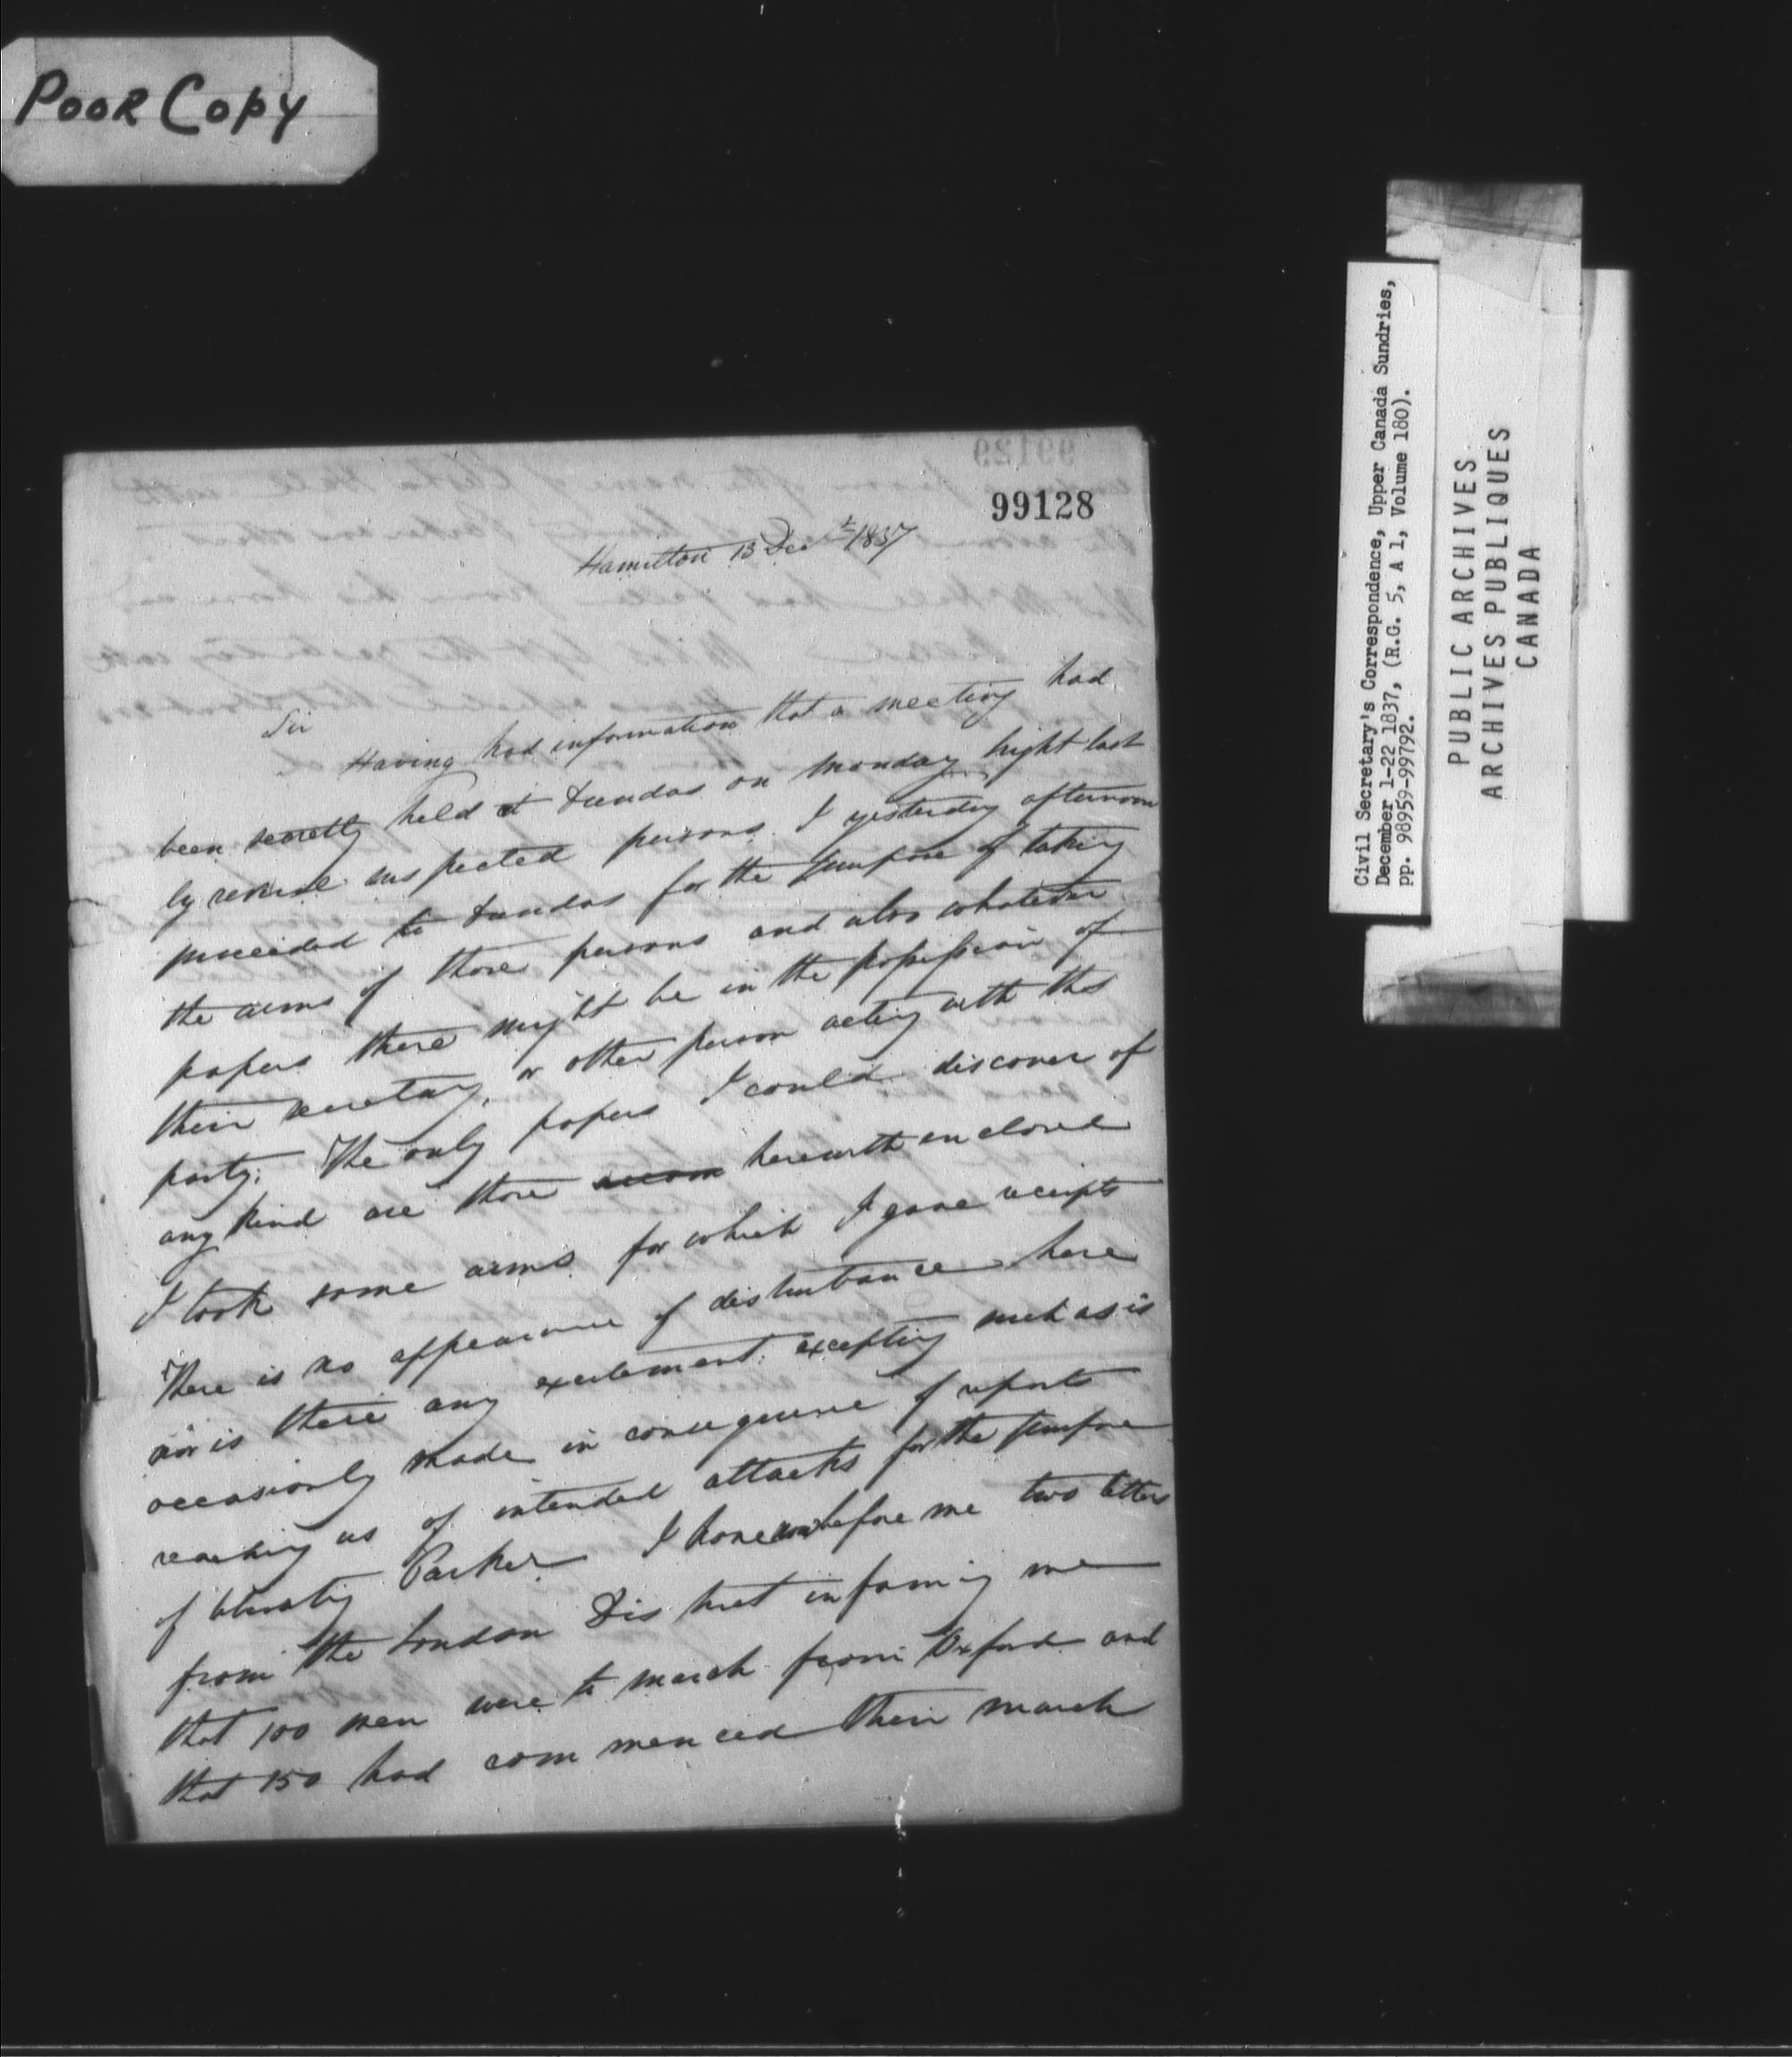 POOR COPY
99128
Hamilton 13 Decr 1837
Sir
Having had information that a meeting had
been secretly held at Dundas on Monday night last
by several suspected persons. I yesterday afternoon
proceeded to Dundas for the purpose of taking
the arms of those persons and also whatever
papers there might be in the possession of
their secretary, or other person acting with the
party. The only papers I could discover of
any kind are those herewith enclosed
I took some arms for which I gave receipts
There is no appearance of disturbance here
nor is there any excitement excepting such as is
occasionly made in consequence of reports
reaching us of intended attacks for the purpose
of liberating Parker. I have now before me two letters
from the London District informing me
that 100 men were to march from Oxford and
that 150 had commenced their march
Civil Secretary's Correspondence, Upper Canada Sundries,
December 1-22 1837, (R.G. 5, A 1, Volume 180).
pp. 98959-99792.
PUBLIC ARCHIVES
ARCHIVES PUBLIQUES
CANADA